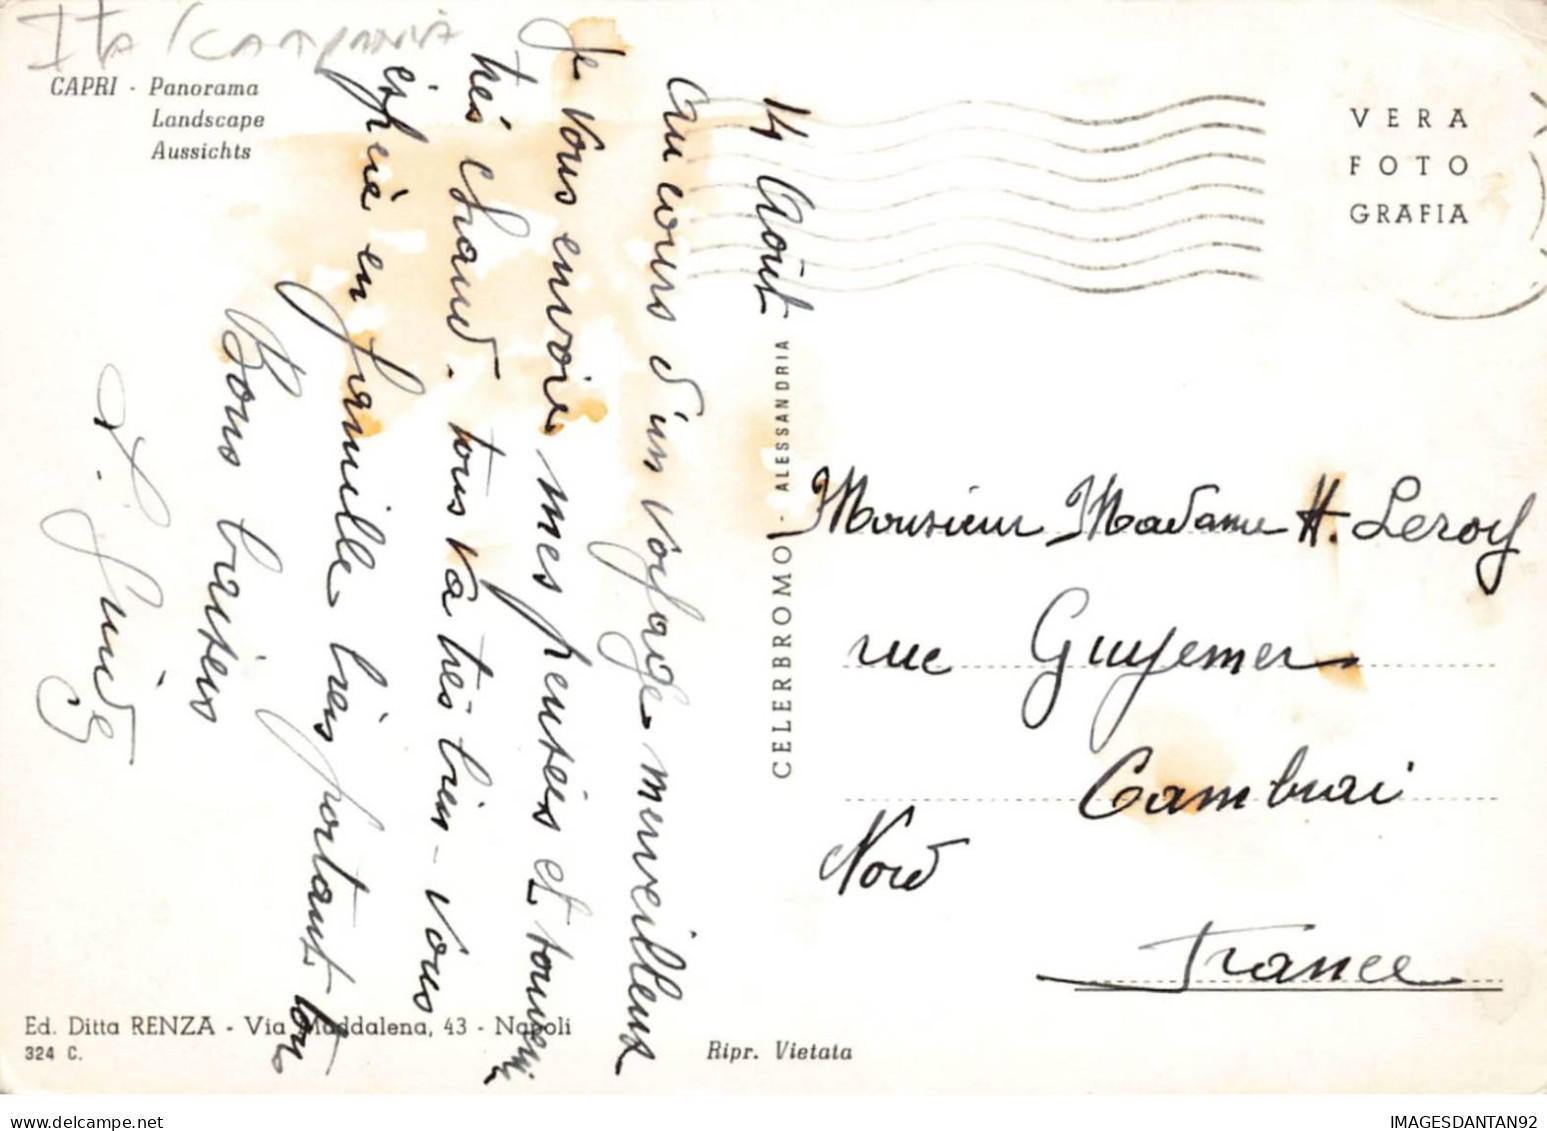 Ita Campania
CAPRI - Panorama
Landscape
Aussichts
14 Août
Au cours d'un voyage merveilleux
Je vous envoie mes pensées et souvenir
très chaud. tous va très bien - vous
en famille bien portant
Bons baisers
CELERBROMO - ALESSANDRIA
VERA
FOTO
GRAFIA
Monsieur Madame H. Leroy
rue Guynemer
Cambrai
Nord
France
Ed. Ditta RENZA - Via Maddalena, 43 - Napoli
324 C.
Ripr. Vietata
IMAGESDANTAN92